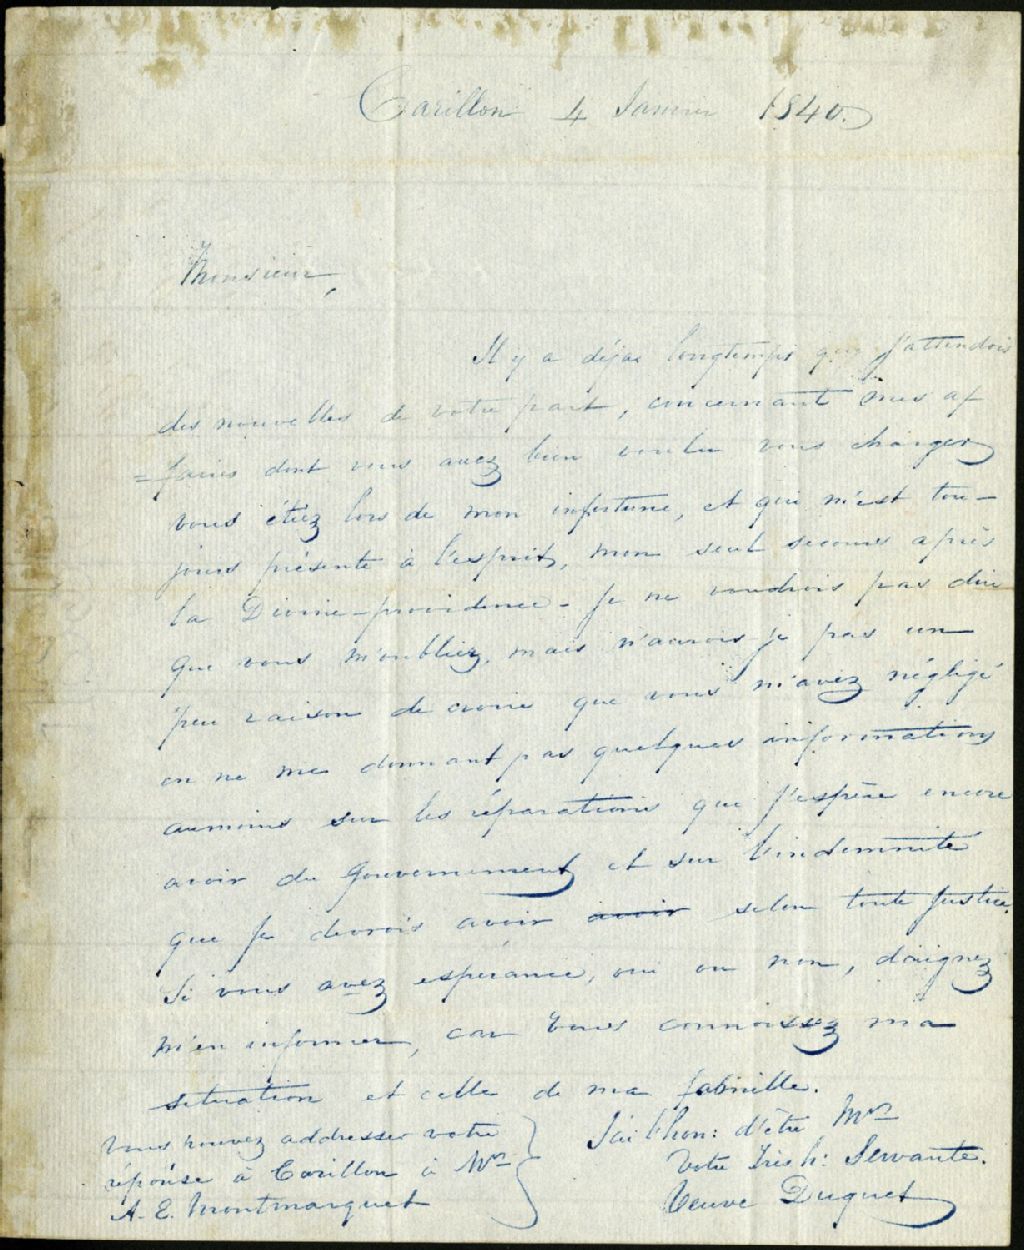 Carillon 4 Janvier 1840.
Monsieur,
Il y a déjas longtemps que j'attendois
des nouvelles de votre part, concernant mes af
=faires dont vous avez bien voulu vous charger
vous étiez lors de mon infortune, et qui m'est tou-
jours présente à l'esprit, mon seul secours après
la Divine-providence. Je ne voudrois pas dire
que vous m'oubliez, mais n'aurois je pas un
peu raison de croire que vous m'avez négligé
en ne me donnant pas quelques informations
aumoins sur les réparations que j'espère encore
avoir du Gouvernement et sur l'indemnité
que je devrois avoir avoir selon toute justice.
Si vous avez espérance, oui ou non, daignez
m'en informer, car vous connoissez ma
situation et celle de ma famille.
J'ai l'hon: d'être Mr
Votre Très h: Servante.
Veuve Duquet
Vous pouvez addresser votre
réponse à Carillon à Mr
A. E. Montmarquet